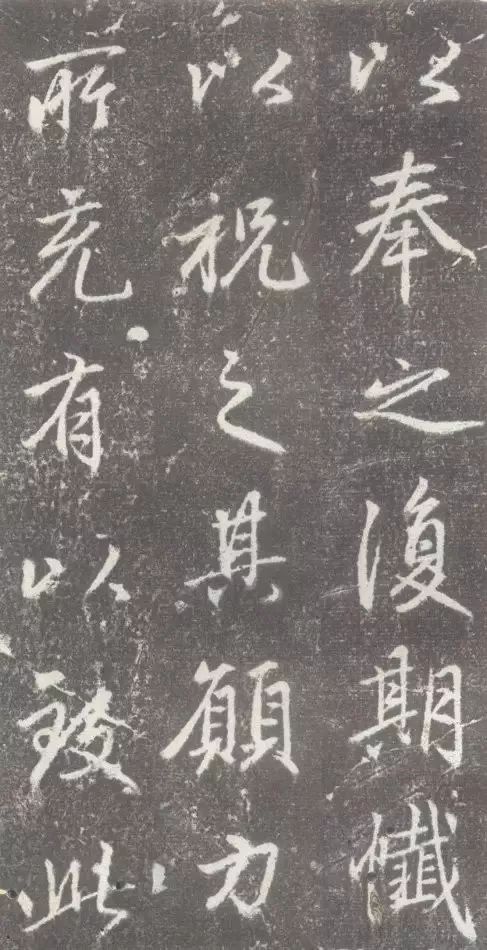 以奉之復期懺
以祝之其願力
所充有以致此